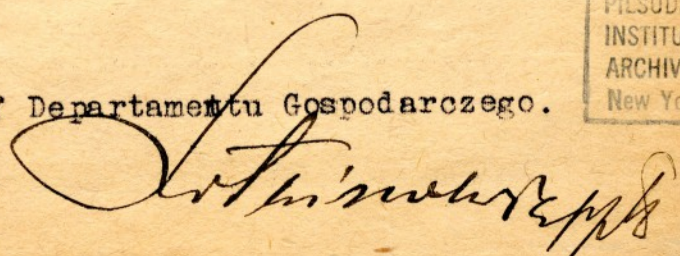 Departamentu Gospodarczego.
PIŁSUD
INSTITU
ARCHIV
New Yo